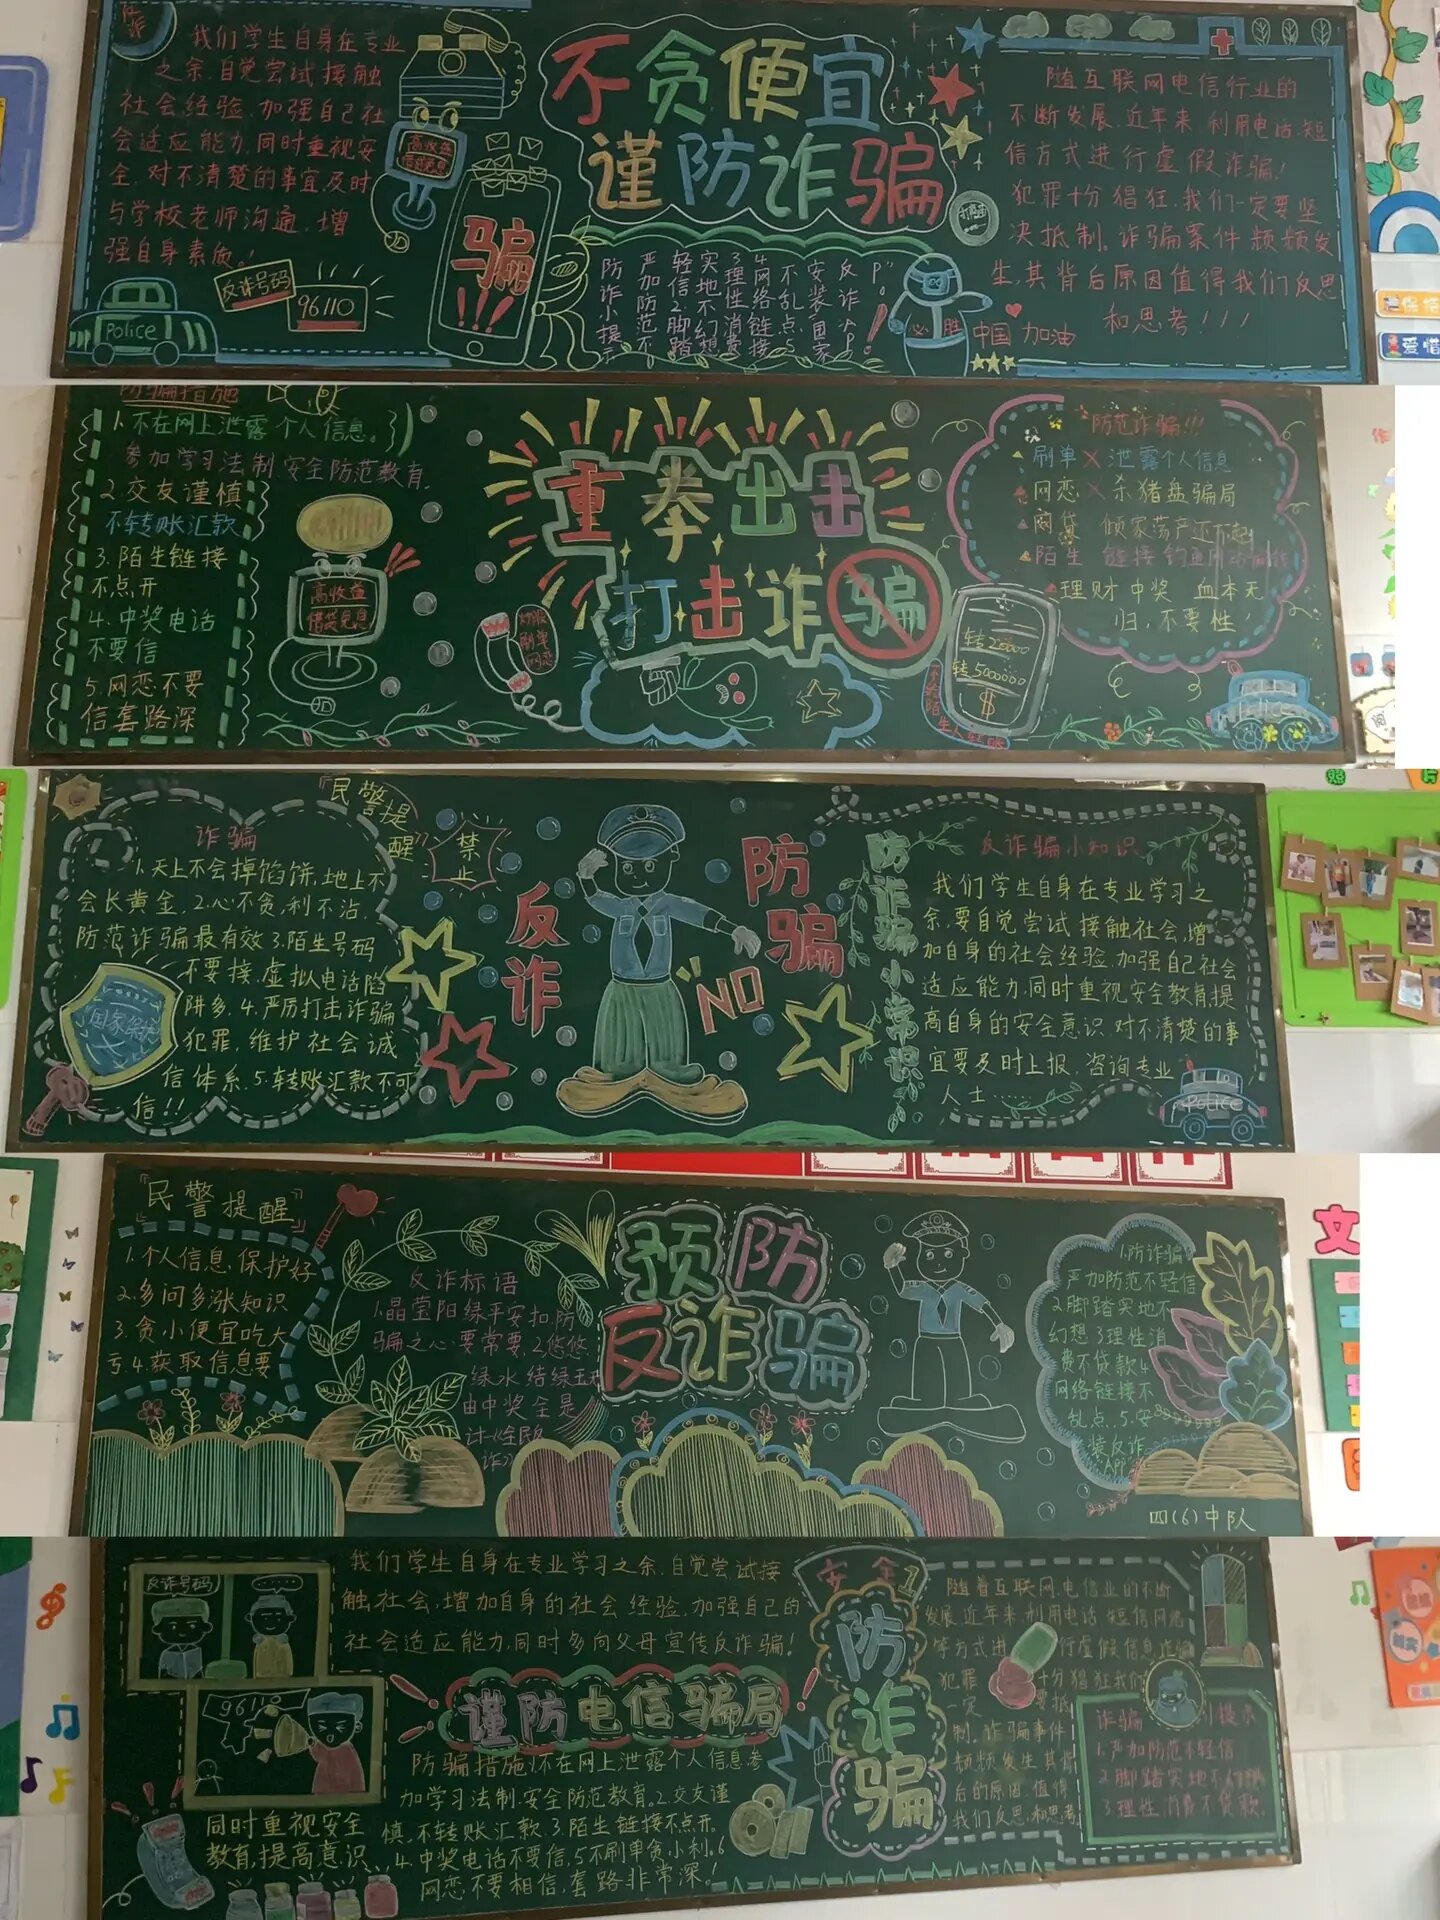 反诈
我们学生自身在专业
之余,自觉尝试接触
社会经验,加强自己社
会适应能力,同时重视安
全,对不清楚的事宜及时
与学校老师沟通,增
强自身素质。!
反诈号码
96110
Police
高收益
骗
!!!
不贪便宜
谨防诈骗
防诈小提示
严加防范不
轻信2脚踏
实地不幻想
3理性消费
4网络链接
不乱点.5
安装国家
反诈APP!
打高击
必胜
中国 加油
随互联网电信行业的
不断发展,近年来,利用电话,短
信方式进行虚假诈骗!
犯罪十分猖狂,我们一定要坚
决抵制。诈骗案件频频发
生,其背后原因值得我们反思
和思考!!!
保持
爱惜
防骗措施
1.不在网上泄露个人信息。
参加学习法制安全防范教育.
2.交友谨慎
不转账汇款
3.陌生链接
不点开
4.中奖电话
不要信
5.网恋不要
信套路深
高收益
重拳出击
打击诈骗
刷单
网恋
转20000
转5000000
$
不给陌生人转账
防范诈骗!!!
刷单×泄露个人信息
网恋×杀猪盘骗局
网贷 倾家荡产还不起
陌生 链接钓鱼网站
理财中奖 血本无
归,不要性!
Police
诈骗
1.天上不会掉馅饼,地上不
会长黄金.2.心不贪,利不沾,
防范诈骗最有效3.陌生号码
不要接,虚拟电话陷
阱多.4.严厉打击诈骗
犯罪,维护社会诚
信体系.5.转账汇款不可
信!!
国家
『民警提醒』
禁止
反诈
防骗
NO
防诈骗小常识
反诈骗小知识
我们学生自身在专业学习之
余,要自觉尝试接触社会,增
加自身的社会经验,加强自己社会
适应能力,同时重视安全教育,提
高自身的安全意识,对不清楚的事
宜要及时上报,咨询专业
人士......
POLICE
『民警提醒』
1.个人信息保护好
2.多问多涨知识
3.贪小便宜吃大
亏.4.获取信息要
反诈标语
1.晶莹阳绿平安扣,防
骗之心要常要.2悠悠
绿水结绿玉
由中奖全是
计《全民反
诈》
预防
反诈骗
1.防诈骗
严加防范不轻信
2.脚踏实地不
幻想3.理性消
费不贷款4
网络链接不
乱点.5.安
装反诈
APP
四(6)中队
文
反诈号码
96110
我们学生自身在专业学习之余,自觉尝试接
触社会,增加自身的社会经验,加强自己的
社会适应能力,同时多向父母宣传反诈骗!
谨防电信骗局
防骗措施,不在网上泄露个人信息参
加学习法制,安全防范教育。2.交友谨
慎,不转账汇款.3.陌生链接不点开
4.中奖电话不要信,5不刷单贪小利.6
网恋不要相信,套路非常深!
同时重视安全
教育,提高意识
安全
防诈骗
随着互联网,电信业的不断
发展,近年来,利用电话短信网络
等方式进行虚假信息诈骗
犯罪十分猖狂我们
一定要抵
制。诈骗事件
频频发生其背
后的原因,值得
我们反思和思考
诈骗小提示
1.严加防范不轻信
2.脚踏实地不幻想
3.理性消费不贷款.